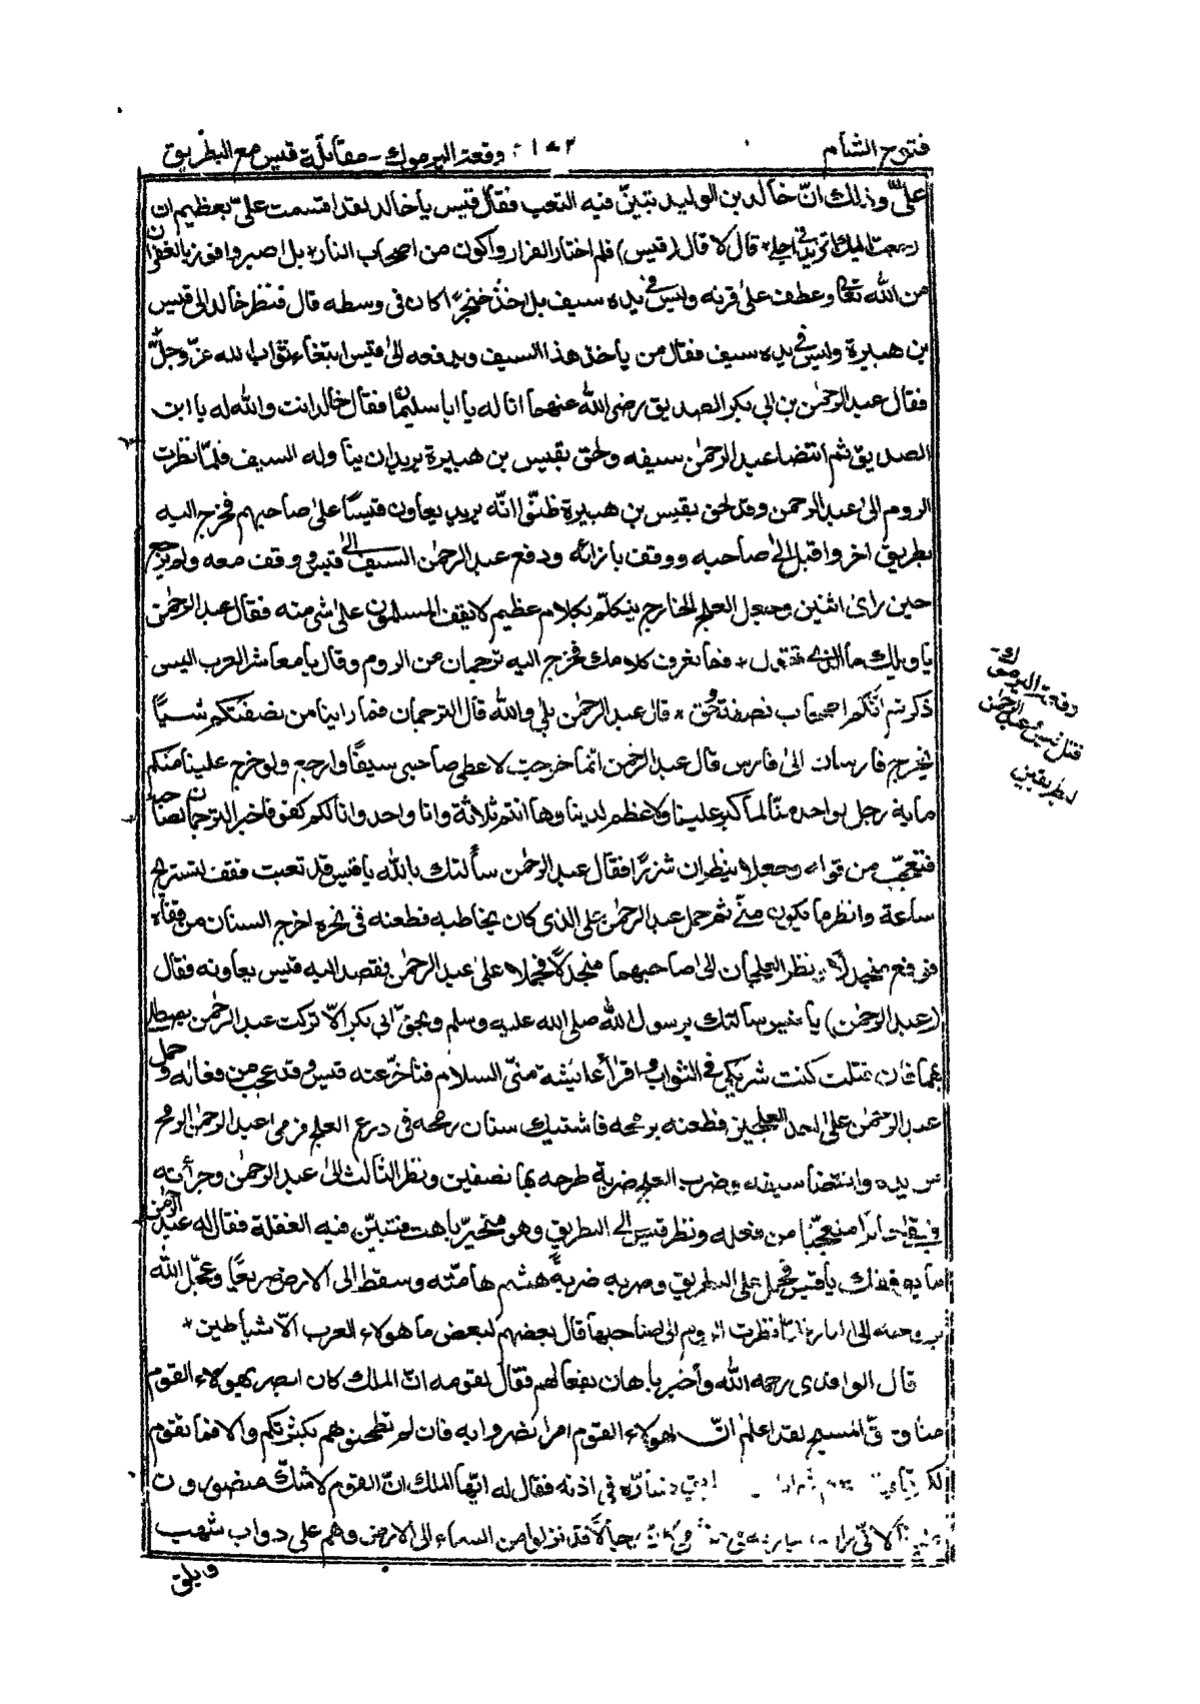 فتوح الشأم ١٠٢ وقعة اليرموك - مقابلة قيس مع البطريق
على وذلك انّ خالد بن الوليد تبيّن فيه التعب فقال قيس يأخالد لقد اقسمت علىّ بعظيم ان
رجعت اليك تزيد فى اجلى قال لا قال (قيس) فلم اختار الفرار واكون من اصحاب النار بل اصبر وافوز بالغفران
من الله تعالى وعطف على قرنه وليس فى يده سيف بل اخذ خنجرًا كان فى وسطه قال فنظر خالد الى قيس
بن هبيرة وليس فى يده سيف فقال من يأخذ هذا السيف ويدفعه الى قيس ابتغاء ثواب الله عزّ وجلّ
فقال عبد الرحمٰن بن ابى بكر الصديق رضى الله عنهما انا له يا ابا سليمان فقال خالد انت والله له يا ابن
الصديق ثم انتضا عبد الرحمٰن سيفه ولحق بقيس بن هبيرة يريد ان يناوله السيف فلمّا نظرت
الروم الى عبد الرحمن وقد لحق بقيس بن هبيرة ظنّوا انّه يريد يعاون قيسًا على صاحبهم فخرج اليه
بطريق اخر واقبل الى صاحبه ووقف بازائه ودفع عبد الرحمٰن السيف الى قيس ووقف معه ولم يرجع
حين راى اثنين وجعل العلج الخارج يتكلّم بكلام عظيم لا يقف المسلمون على شى منه فقال عبد الرحمٰن
يا ويلك ما الذى تقول فما نعرف كلامك فخرج اليه ترجمان من الروم وقال يا معاشر العرب اليس
ذكرتم انّكم اصحاب نصفة وحق قال عبد الرحمٰن بلى والله قال الترجمان فما راينا من نصفتكم شيئًا
يخرج فارسان الى فارس قال عبد الرحمٰن انّما خرجت لاعطى صاحبى سيفًا وارجع ولو خرج علينا منكم
ماية رجل لواحد منّا لما كبر علينا ولا عظم لدينا وها انتم ثلاثة وانا واحد وانا لكم كفو فاخبر الترجمان صاحباه
فتعجّب من قوله وجعلا ينظران شزرًا فقال عبد الرحمٰن سألتك بالله يا قيس قد تعبت فقف لتستريح
ساعة وانظر ما يكون منّى ثم حمل عبد الرحمٰن على الذى كان يخاطبه فطعنه فى نحره اخرج السنان من قفاه
فوقع نظر العلجان الى صاحبهما منجدلًا فحملا على عبد الرحمٰن فقصد اليه قيس يعاونه فقال
(عبد الرحمٰن) يا قيس سالتك برسول الله صلى الله عليه وسلم وبحقّ ابى بكر الّا تركت عبد الرحمٰن يصطلى
بهما فان قتلت كنت شريكى فى الثواب واقرأ عائشة منّى السلام فتأخّر عنه قيس وقد عجب من فعاله وحمل
عبد الرحمٰن على احد العلجين فطعنه برمحه فاشتبك سنان رمحه فى درع العلج فرمى عبد الرحمٰن الرمح
من يده وانتضا سيفه وضرب العلج ضربة طرحه بها نصفين ونظر الثالث الى عبد الرحمٰن وجرأته
متعجّبا من فعله ونظر قيس الى البطريق وهو متحيّر باهت فتبيّن فيه الغفلة فقال له عبد الرحمٰن
يا قيس فحمل على البطريق وضربه ضربةً هشم هامّته وسقط الى الارض صريعًا وعجّل الله
بروحه الى النار فلمّا نظرت الروم الى صاحبها قال بعضهم لبعض ما هولاء العرب الّا شياطين
قال الواقدى رحمه الله وأخبر باهان بفعالهم فقال لقومه انّ الملك كان ابصر بهولاء القوم
منّا وحقّ المسيح لقد اعلم انّ لهولاء القوم امرا نصروا به فان لم تطحنوهم بكثرتكم والا فما تقوم
لكم فى اذنه فقال له ايّها الملك انّ القوم لا شكّ منصورون
رجالًا قد نزلوا من السماء الى الارض وهم على دواب شهب
وبلق
وقعة اليرموك -
قتل سيدنا عبد الرحمٰن
لبطريقين